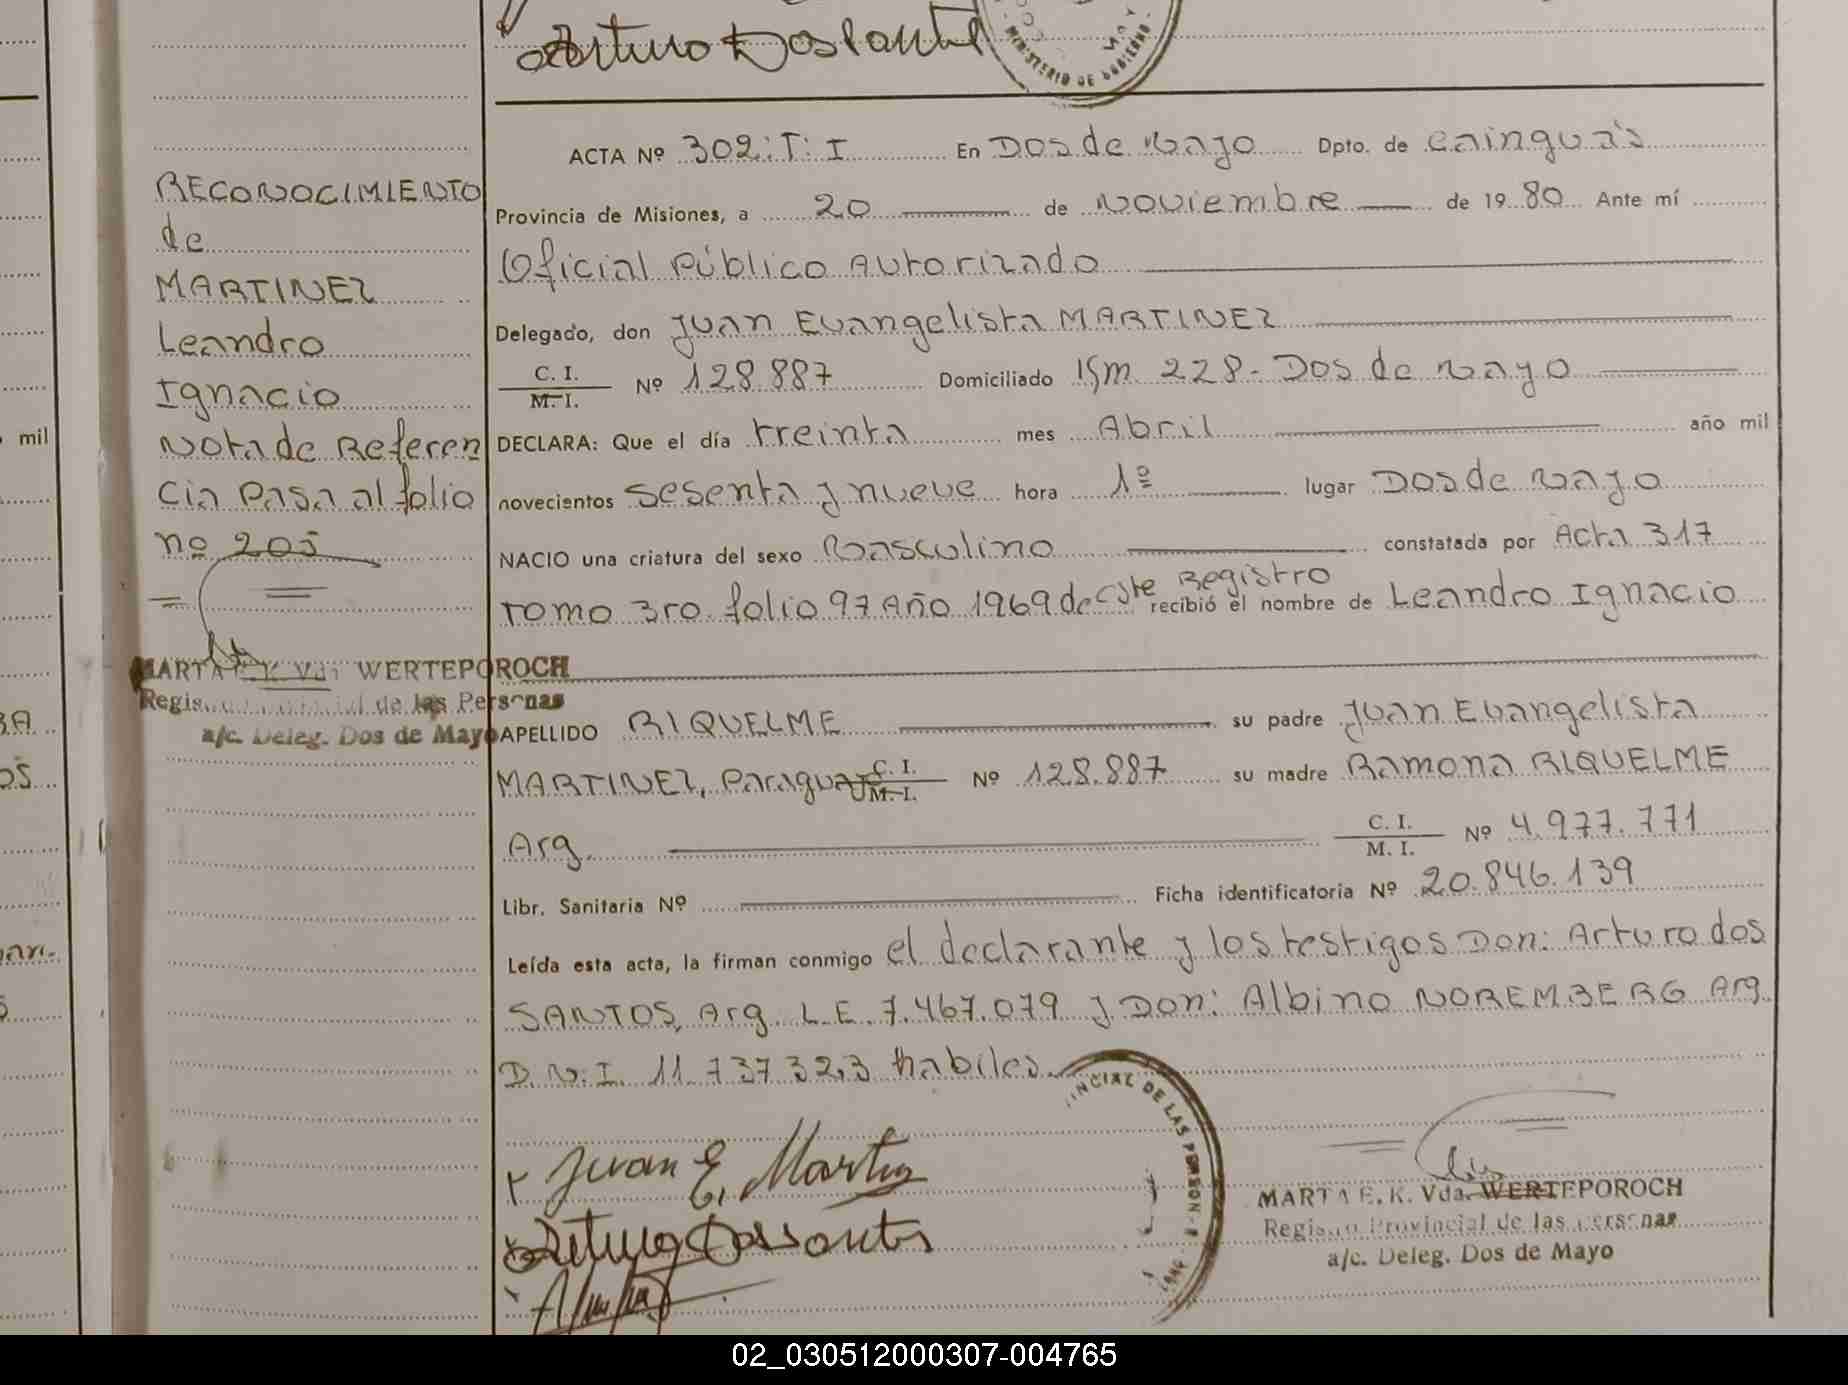 Arturo Dos Santos
MINISTERIO DE GOBIERNO
ACTA Nº 302: T: I En Dos de Mayo Dpto. de Cainguás
RECONOCIMIENTO
de
MARTINEZ
Leandro
Ignacio
Nota de Referen
cia Pasa al folio
nº 205
MARTA E. K. Vda. WERTEPOROCH
Regis Provincial de las Personas
a/c. Deleg. Dos de Mayo
Provincia de Misiones, a 20 de Noviembre de 19 80 Ante mí
Oficial Público Autorizado
Delegado, don Juan Evangelista MARTINEZ
C. I.
M. I.
Nº 128.887 Domiciliado Km 228 - Dos de Mayo
DECLARA: Que el día treinta mes Abril año mil
novecientos sesenta y nueve hora 1º lugar Dos de Mayo
NACIO una criatura del sexo Masculino constatada por Acta 317
Tomo 3ro. folio 97 Año 1969 de este Registro recibió el nombre de Leandro Ignacio
APELLIDO RIQUELME su padre Juan Evangelista
MARTINEZ, Paraguay C. I. M. I. Nº 128.887 su madre Ramona RIQUELME
Arg. C. I. M. I. Nº 4.977.771
Libr. Sanitaria Nº Ficha identificatoria Nº 20.846.139
Leída esta acta, la firman conmigo el declarante y los testigos Don: Arturo dos
SANTOS, Arg. L.E. 7.467.079 y Don: Albino NOREMBERG Arg.
D.N.I. 11.737.323 habiles.
Juan E. Martinez
Arturo Dos Santos
NCIAL DE LAS PERSON
MARTA E. K. Vda. WERTEPOROCH
Registro Provincial de las Personas
a/c. Deleg. Dos de Mayo
mil
02_030512000307-004765